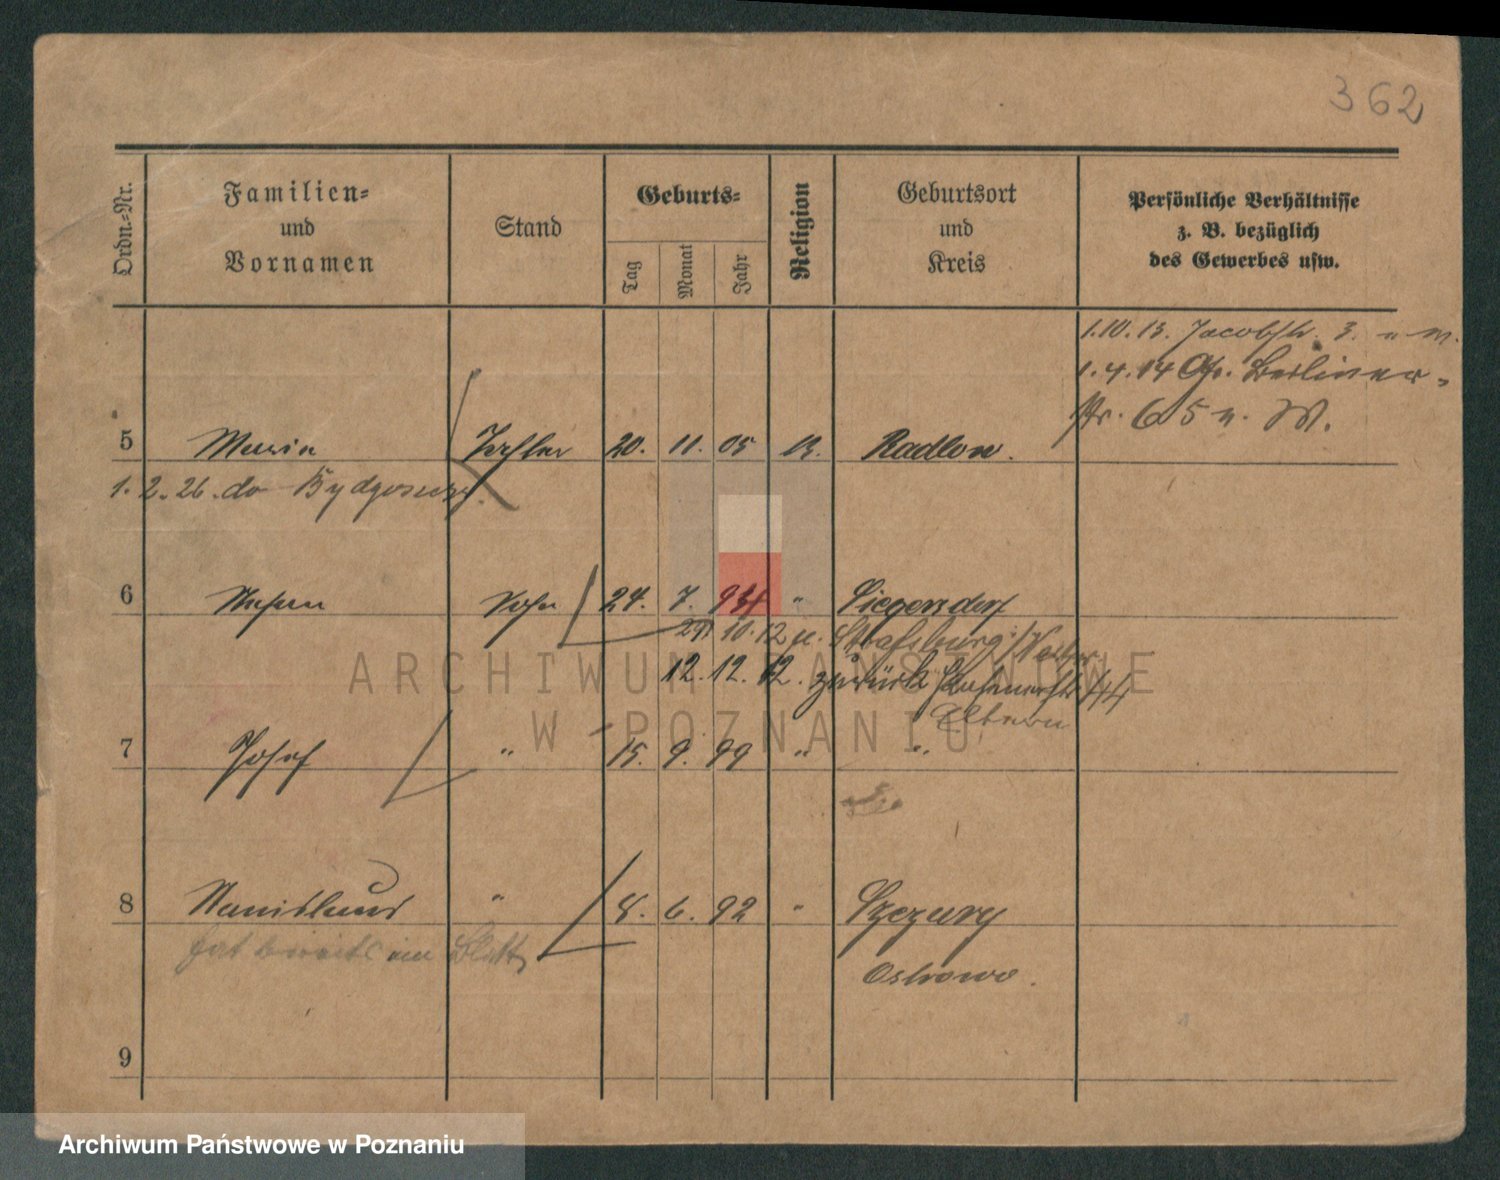 362
Ordn.=Nr.
Familien=
und
Vornamen
Stand
Geburts=
Tag
Monat
Jahr
Religion
Geburtsort
und
Kreis
Persönliche Verhältnisse
z. B. bezüglich
des Gewerbes usw.
1.10.13. Jacobstr. 3.
1.4.14 Gr. Berliner-
str. 65
5 Maria Tochter 20. 11. 05 Radlow.
1.2.26. do Bydgoszczy.
6 Stefan Sohn 24. 7. 94 " Siegersdorf
10.12 Strasburg
12.12.12. zurück
Eltern
7 Josef " 15. 9. 99 " "
8 Stanislaus " 8. 6. 92 " Szczury
hat bereits ein Blatt
Ostrowo.
9
ARCHIWUM PAŃSTWOWE
W POZNANIU
Archiwum Państwowe w Poznaniu